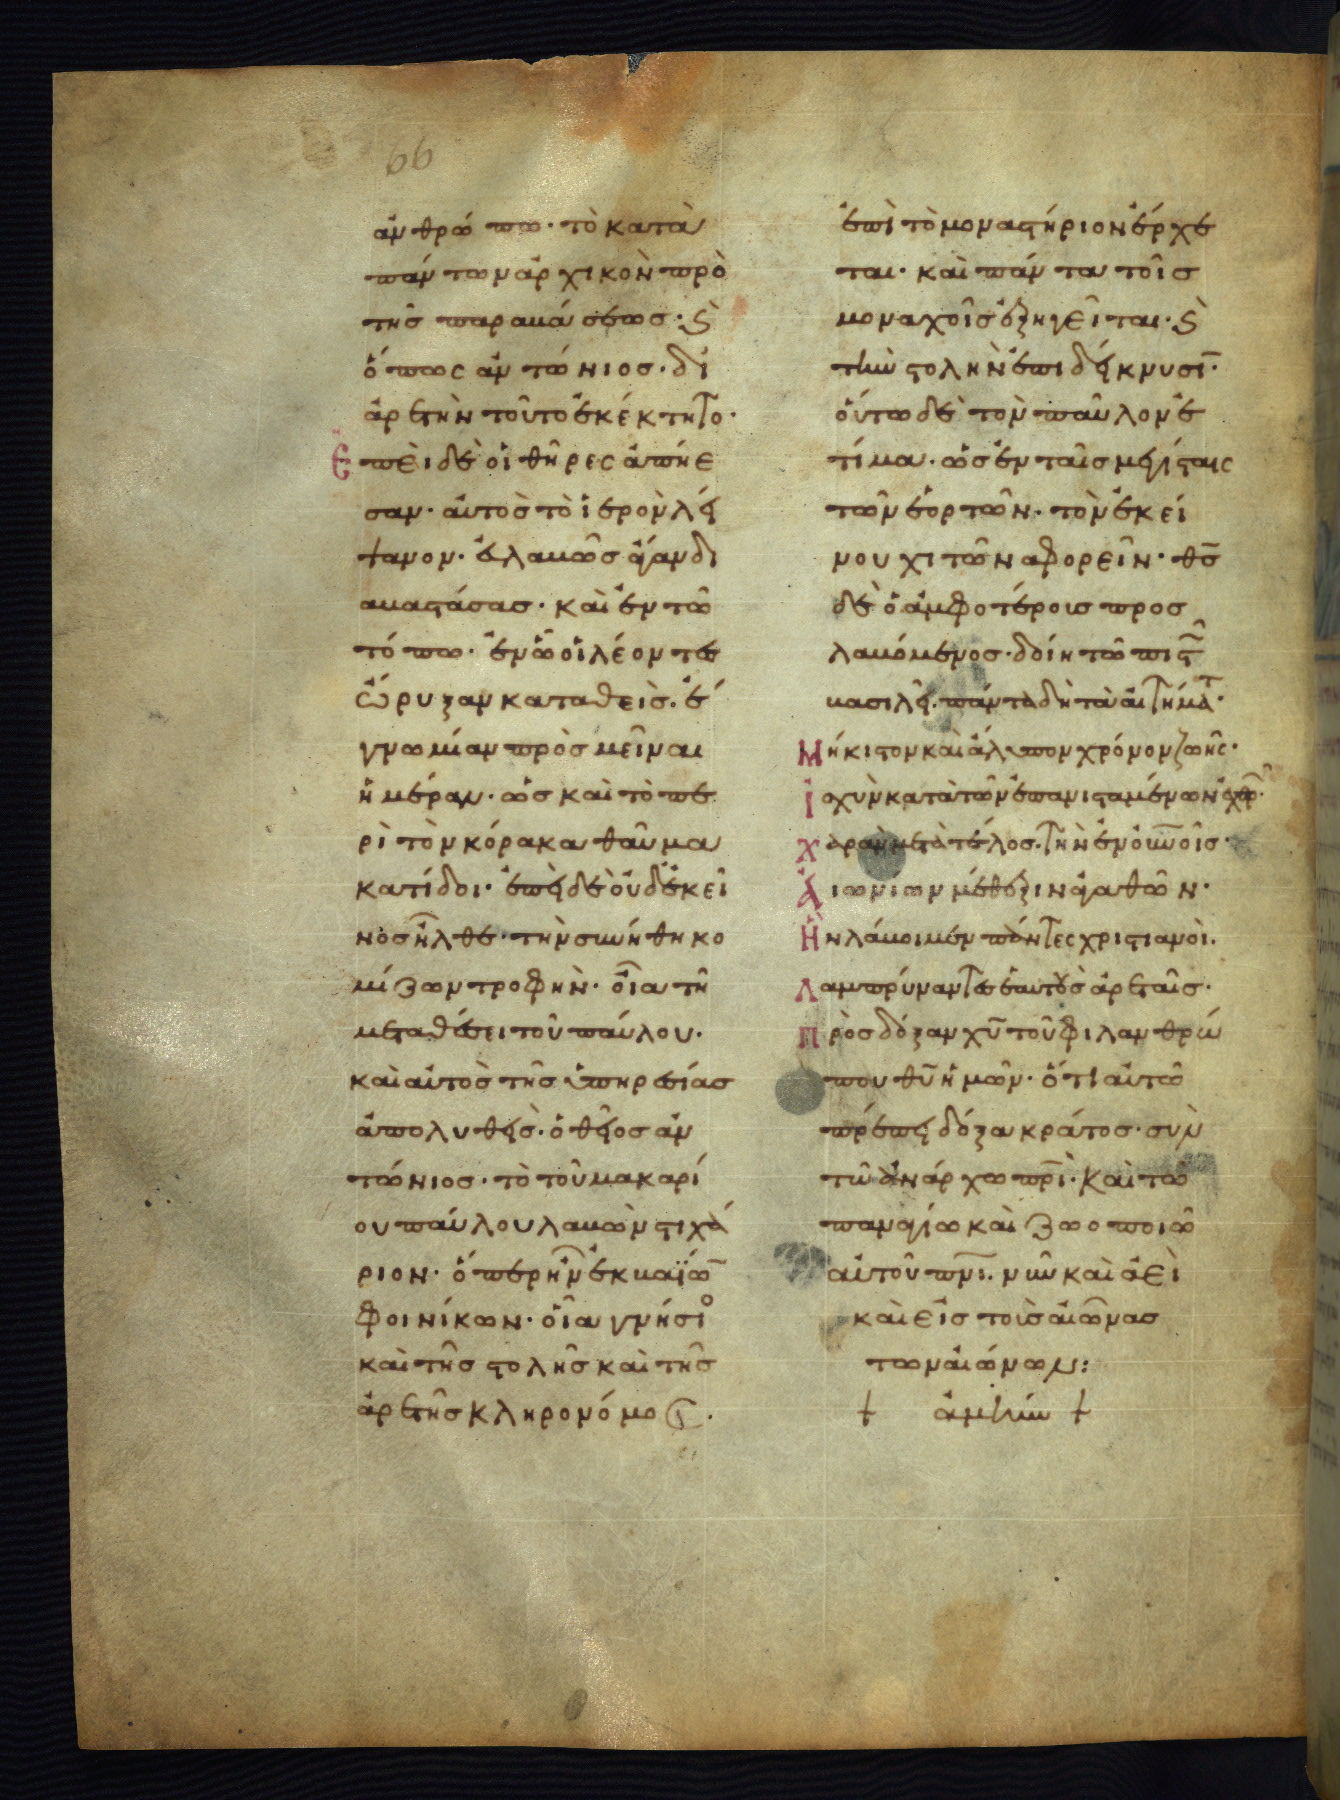 66
ἀνθρώπω· τὸ κατὰ
πάντων ἀρχικὸν πρὸ
τῆς παραβάσεως· ϗ
ὅπως ἀντώνιος· δι
ἀρετὴν τοῦτο ἐκέκτητο·
Ἐπεὶ δὲ οἱ θῆρες ἀπήε
σαν· αὐτὸς τὸ ἱερὸν λεί
ψανον· εὐλαβῶς ἄγαν δι
αναστάσας· καὶ ἐν τῶ
τόπω· ἐν ᾧ οἱ λέοντε
ὤρυξαν καταθεὶς· ἐ
γνω μίαν προσμεῖναι
ἡμέραν· ὡς καὶ τὸ πε
ρὶ τὸν κόρακα θαῦμα
κατίδοι· ἐπεὶ δὲ οὐδ ἐκεῖ
νὸς ἦλθε· τὴν συνήθη κο
μίζων τροφὴν· οἷα τῆ
μεταθέσει τοῦ παύλου·
καὶ αὐτὸς τῆς ὑπηρεσίας
ἀπολυθεὶς· ὁ θεῖος ἀν
τώνιος· τὸ τοῦ μακαρί
ου παύλου λαβὼν στιχά
ριον· ὅπερ ἦν ἐκ βαΐω̅
φοινίκων· οἷα γνήσιο
καὶ τῆς στολῆς καὶ τῆς
ἀρετῆς κληρονόμος·
ἐπὶ τὸ μοναστήριον ἔρχε
ται· καὶ πάντα τοῖς
μοναχοῖς ἐξηγεῖται· ϗ
τὴν στολὴν ἐπιδείκνυσι̅·
οὕτω δὲ τὸν παῦλον ἐ
τίμα· ὡς ἐν ταῖς μεγίσταις
τῶν ἑορτῶν· τὸν ἐκεί
νου χιτῶνα φορεῖν· θ̅ς̅
δὲ ὁ ἀμφοτέροις προσ
λαβόμενος· δοίη τῶ πιστ̅
βασιλεῖ· πάντα δὴ τὰ αἰτήματ·
Μήκιστον καὶ ἄλυπον χρόνον ζωῆς·
Ἰσχὺν κατὰ τῶν ἐπανισταμένων ἐχθρ·
Χαρὰν μετὰ τέλος· τὴν ἐν οὐ̅ν̅οῖς·
Ἀιωνίων μέθεξιν ἀγαθῶν·
Ἧν λάβοιμεν πάντες χριστιανοὶ·
Λαμπρύναντες ἑαυτοὺς ἀρεταῖς·
Πρὸς δόξαν χ̅υ̅ τοῦ φιλανθρώ
που θ̅υ̅ ἡμῶν· ὅτι αὐτῶ
πρέπει δόξα κράτος· σὺν
τῶ ἀνάρχω π̅ρ̅ὶ· καὶ τῶ
παναγίω καὶ ζωοποιῶ
αὐτοῦ π̅ν̅ι· νῦν καὶ ἀεὶ
καὶ εἰς τοὺς αἰῶνας
τῶν αἰώνων:
† ἀμήν †